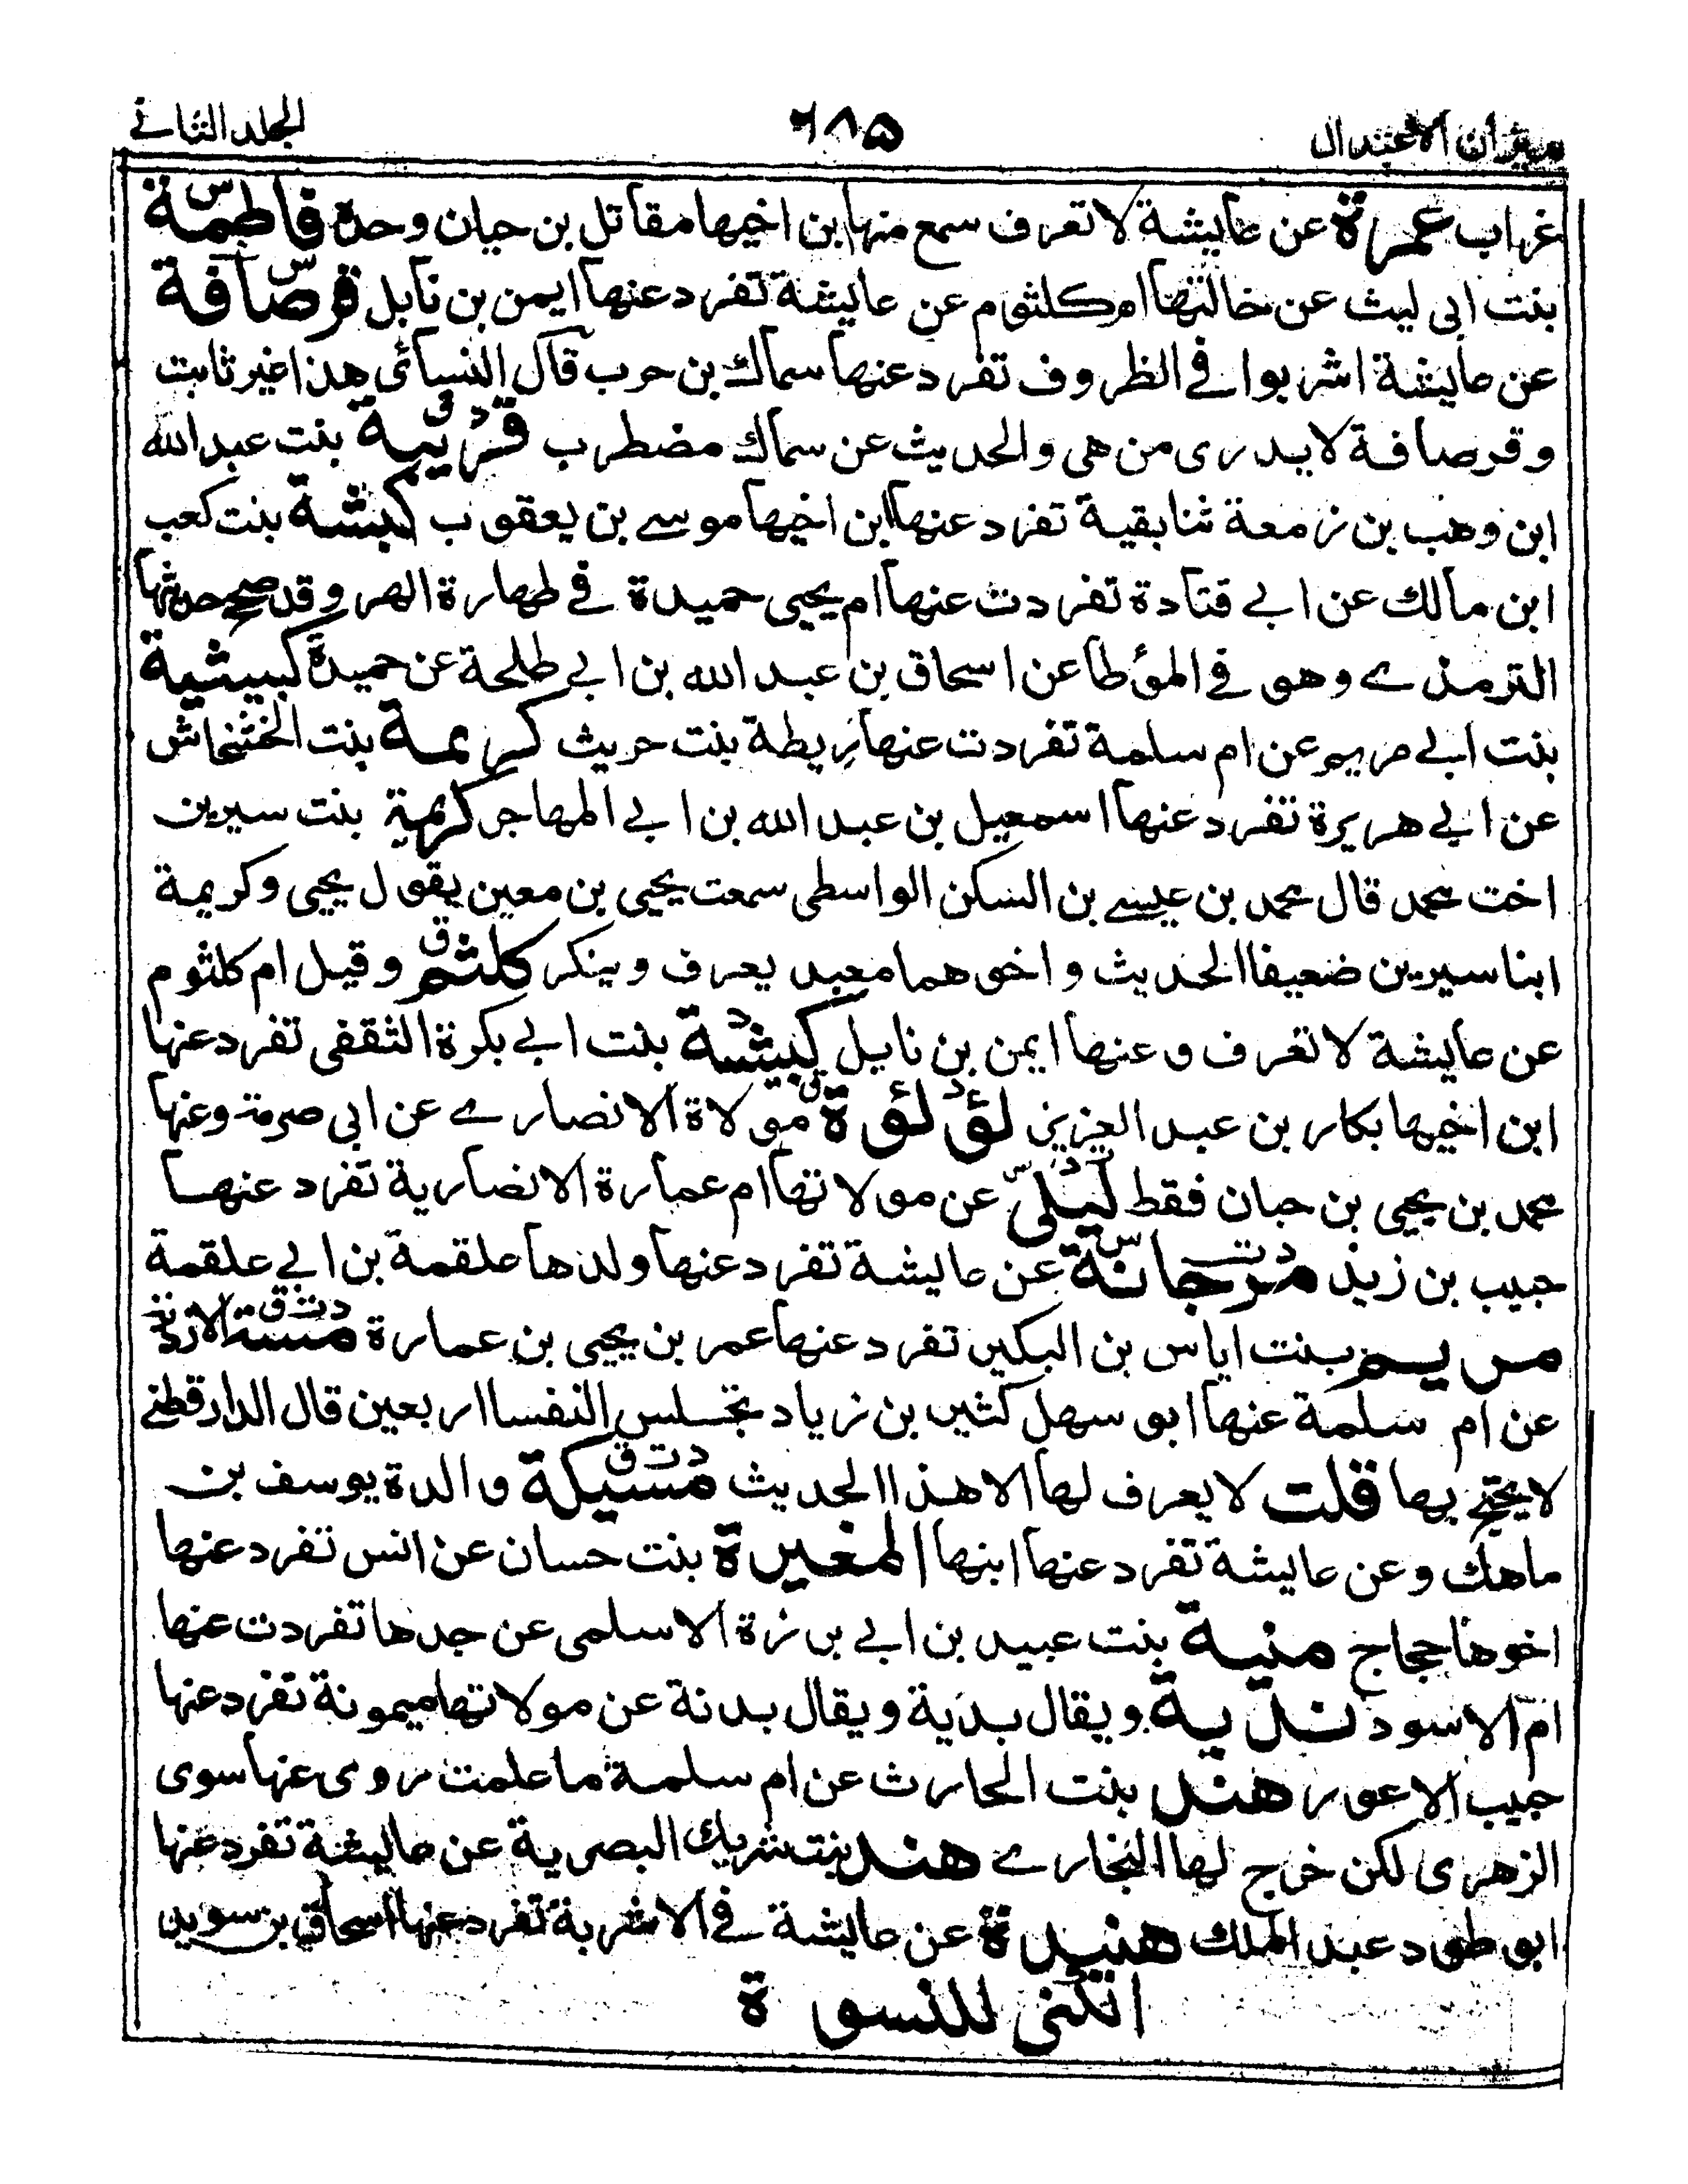 ميزان الاعتدال ٦٨٥ الجلد الثانے
غراب عمرة عن عايشة لا تعرف سمع منها ابن اخيها مقاتل بن حيان وحدة فاطمة س
بنت ابى ليث عن خالتها ام كلثوم عن عايشة تفرد عنها ايمن بن نابل قرصافة س
عن عايشة اشربوا فے الظروف تفرد عنها سماك بن حرب قال النسائى هذا غير ثابت
وقرصافة لا يدرى من هى والحديث عن سماك مضطرب قريبة د ق بنت عبد الله
ابن وهب بن زمعة ثنا بقية تفرد عنها ابن اخيها موسے بن يعقوب كبشة بنت كعب
ابن مالك عن ابے قتادة تفردت عنها ام يحيى حميدة فے طهارة الهر وقد صحح حديثها
الترمذے وهو فے المؤطا عن اسحاق بن عبد الله بن ابے طلحة عن حميدة كبيشية
بنت ابے مريم عن ام سلمة تفردت عنها ريطة بنت حريث كريمة بنت الخشخاش
عن ابے هريرة تفرد عنها اسمعيل بن عبد الله بن ابے المهاجر كريمة بنت سيرين
اخت محمد قال محمد بن عيسے بن السكن الواسطى سمعت يحيى بن معين يقول يحيى وكريمة
ابنا سيرين ضعيفا الحديث واخوهما معبد يعرف وينكر كلثم ق وقيل ام كلثوم
عن عايشة لا تعرف وعنها ايمن بن نابل كبيشة د بنت ابے بكرة الثقفى تفرد عنها
ابن اخيها بكار بن عبد العزيز لؤلؤة د ت ق مولاة الانصارے عن ابى صرمة وعنها
محمد بن يحيى بن حبان فقط ليلى ت س عن مولاتها ام عمارة الانصارية تفرد عنها
حبيب بن زيد مرجانة د ت س عن عايشة تفرد عنها ولدها علقمة بن ابے علقمة
مريم بنت اياس بن البكير تفرد عنها عمر بن يحيى بن عمارة مسة د ت ق الازدية
عن ام سلمة عنها ابو سهل كثير بن زياد تجلس النفسا اربعين قال الدارقطنے
لا يحتج بها قلت لا يعرف لها الا هذا الحديث مسيكة د ت ق والدة يوسف بن
ماهك وعن عايشة تفرد عنها ابنها المغيرة بنت حسان عن انس تفرد عنها
اخوها حجاج منية بنت عبيد بن ابے برزة الاسلمى عن جدها تفردت عنها
ام الاسود ندية ويقال بدية ويقال بدنة عن مولاتها ميمونة تفرد عنها
حبيب الاعور هند بنت الحارث عن ام سلمة ما علمت روى عنها سوى
الزهرى لكن خرج لها البخارے هند بنت شريك البصرية عن عايشة تفرد عنها
ابو طود عبد الملك هنيدة عن عايشة فے الاشربة تفرد عنها اسحاق بن سويد
الكنى للنسوة